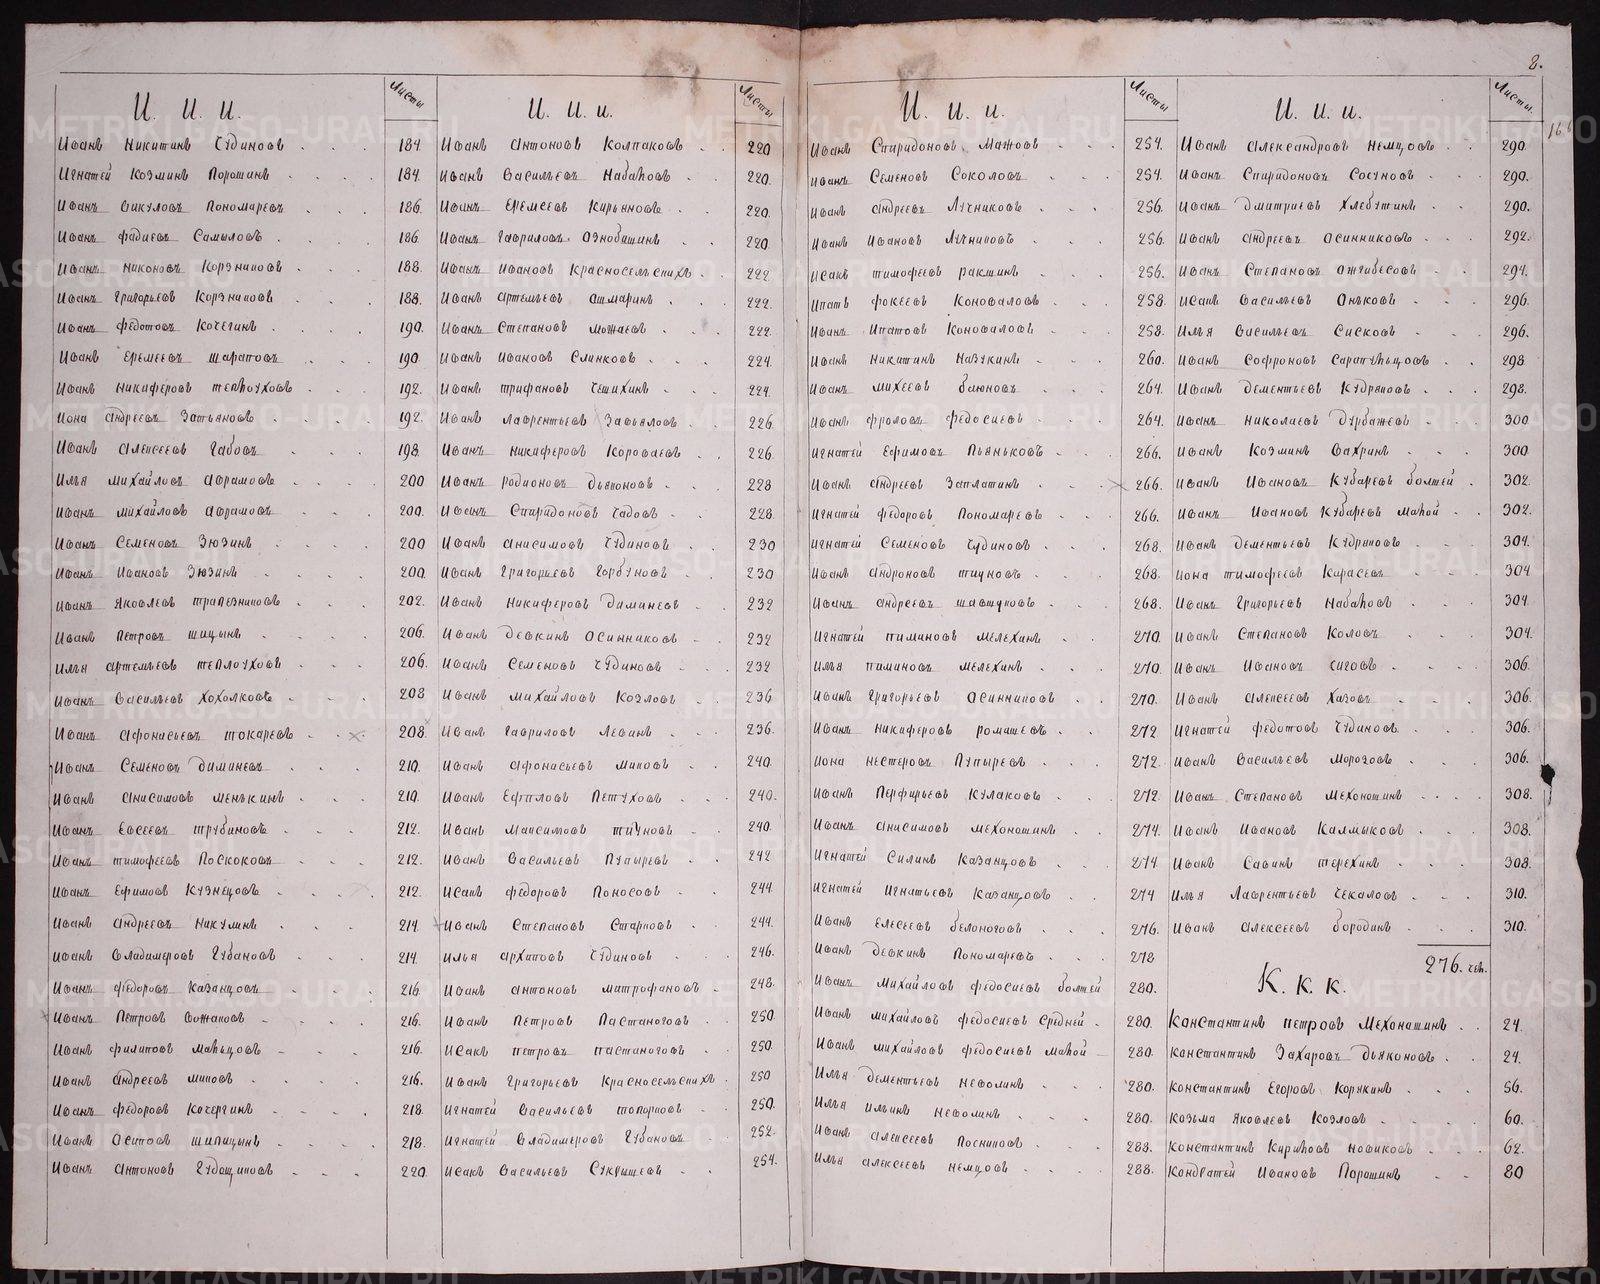 2.
И. И. И.
Листы
Иванъ Никитинъ Чудиновъ 184
Игнатей Козминъ Порошинъ 184.
Иванъ Викуловъ Пономаревъ 186.
Иванъ Фадиевъ Самыловъ 186
Иванъ Никоновъ Корзниковъ 188.
Иванъ Григорьевъ Корзниковъ 188.
Иванъ Федотовъ Кочегинъ 190.
Иванъ Еремеевъ Шараповъ 190
Иванъ Никиферовъ Теплоуховъ 192.
Иона Андреевъ 192.
Иванъ Алексеевъ Габовъ 198.
Илья Михайловъ Аврамовъ 200
Иванъ Михайловъ Аврамовъ 200.
Иванъ Семеновъ Зюзинъ 200
Иванъ Ивановъ Зюзинъ 200.
Иванъ Яковлевъ Трапезниковъ 202.
Иванъ Петровъ Шицынъ 206.
Илья Артемьевъ Теплоуховъ 206.
Иванъ Васильевъ Хохолковъ 208
Иванъ Афонасьевъ Токаревъ 208.
Иванъ Семеновъ Диминевъ 210.
Иванъ Анисимовъ Менькинъ 210.
Иванъ Евсеевъ Трубиновъ 212.
Иванъ Тимофеевъ Поскоковъ 212.
Иванъ Ефимовъ Кузнецовъ 212.
Иванъ Андреевъ Никулинъ 214.
Иванъ Владимеровъ Губановъ 214.
Иванъ Федоровъ Казанцовъ 216.
Иванъ Петровъ Вожаковъ 216.
Иванъ Филиповъ Мальцовъ 216.
Иванъ Андреевъ Миковъ 216.
Иванъ Федоровъ Кочергинъ 218.
Иванъ Осиповъ Шипицынъ 218.
Иванъ Антоновъ Гудощиковъ 220.
И. И. И.
Листы
Иванъ Антоновъ Колпаковъ 220
Иванъ Васильевъ Набатовъ 220.
Иванъ Еремеевъ Кирьяновъ 220.
Иванъ Гавриловъ Ознобишинъ 220
Иванъ Ивановъ Красносельскихъ 222
Иванъ Артемьевъ Ошмаринъ 222.
Иванъ Степановъ Можаевъ 222.
Иванъ Ивановъ Слинковъ 224.
Иванъ Трифановъ Чешихинъ 224.
Иванъ Лаврентьевъ Завьяловъ 226.
Иванъ Никиферовъ Короваевъ 226.
Иванъ Родионовъ Дьяконовъ 228
Иванъ Спиридоновъ Чадовъ 228.
Иванъ Анисимовъ Чудиновъ 230
Иванъ Григорьевъ Горбуновъ 230
Иванъ Никиферовъ Диминевъ 232
Иванъ Девкинъ Осинниковъ 232
Иванъ Семеновъ Чудиновъ 232
Иванъ Михайловъ Козловъ 236
Иванъ Гавриловъ Левинъ 236.
Иванъ Афонасьевъ Миковъ 240.
Иванъ Петуховъ 240.
Иванъ Максимовъ Тиуновъ 240.
Иванъ Васильевъ Пупыревъ 242
Исакъ Федоровъ Поносовъ 244.
Иванъ Степановъ Старковъ 244.
Илья Архиповъ Чудиновъ 246.
Иванъ Антоновъ Митрофановъ 248.
Иванъ Петровъ Пастаноговъ 250.
Исакъ Петровъ Пастаноговъ 250.
Иванъ Григорьевъ Красносельскихъ 250
Игнатей Васильевъ Топорковъ 250.
Игнатей Владимеровъ Губановъ 252.
Исакъ Васильевъ Сукрышевъ 254.
И. И. И.
Листы
Иванъ Спиридоновъ Мажовъ 254.
Иванъ Семеновъ Соколовъ 254.
Иванъ Андреевъ Лучниковъ 256.
Иванъ Ивановъ Лучниковъ 256.
Исакъ Тимофеевъ Ракшинъ 256.
Ипатъ Фокеевъ Коноваловъ 258.
Иванъ Ипатовъ Коноваловъ 258.
Иванъ Никитинъ Мазукинъ 260.
Иванъ Михеевъ Блюновъ 264.
Иванъ Фроловъ Федосиевъ 264.
Игнатей Ефимовъ Пьяньковъ 266.
Иванъ Андреевъ Заплатинъ 266.
Игнатей Федоровъ Пономаревъ 266.
Игнатей Семеновъ Чудиновъ 268.
Иванъ Андроновъ Тиуновъ 268.
Иванъ Андреевъ Шавшуковъ 268.
Игнатей Пимановъ Мелехинъ 270.
Илья Пимановъ Мелехинъ 270.
Иванъ Григорьевъ Осинниковъ 270.
Иванъ Никиферовъ Ромашевъ 272
Иона Нестеровъ Пупыревъ 272.
Иванъ Перфирьевъ Кулаковъ 272.
Иванъ Анисимовъ Мехоношинъ 274.
Игнатей Силинъ Казанцовъ 274
Игнатей Игнатьевъ Казанцовъ 274
Иванъ Елесеевъ Белоноговъ 276.
Иванъ Девкинъ Пономаревъ 278
Иванъ Михайловъ Федосиевъ болшей 280.
Иванъ Михайловъ Федосиевъ Средней 280.
Иванъ Михайловъ Федосиевъ малой 280.
Илья Дементьевъ Неволинъ 280.
Илья Ильинъ Неволинъ 280.
Иванъ Алексеевъ Посниковъ 288.
Илья Алексеевъ Немцовъ 288.
И. И. И.
Листы
Иванъ Александровъ Немцовъ 290.
Иванъ Спиридоновъ Сосуновъ 290.
Иванъ Дмитриевъ Хлебутинъ 290.
Иванъ Андреевъ Осинниковъ 292.
Иванъ Степановъ Ожгибесовъ 294.
Исакъ Васильевъ Оньковъ 296.
Илья Васильевъ Сисковъ 296.
Иванъ Софроновъ Сарапульцовъ 298
Иванъ Дементьевъ Кудряковъ 298.
Иванъ Николаевъ Дурбажевъ 300
Иванъ Козминъ Вахринъ 300
Иванъ Ивановъ Кубаревъ болшей 302.
Иванъ Ивановъ Кубаревъ малой 302.
Иванъ Дементьевъ Кудряковъ 304.
Иона Тимофеевъ Карасевъ 304
Иванъ Григорьевъ Набатовъ 304.
Иванъ Степановъ Коловъ 304.
Иванъ Ивановъ Сиговъ 306.
Иванъ Алексеевъ Хазовъ 306.
Игнатей Федотовъ Чудиновъ 306.
Иванъ Васильевъ Морозовъ 306.
Иванъ Степановъ Мехоношинъ 308.
Иванъ Ивановъ Калмыковъ 308.
Иванъ Савинъ Терехинъ 308.
Илья Лаврентьевъ Чекаловъ 310.
Иванъ Алексеевъ Бородинъ 310.
276. чел.
К. К. К.
Константинъ Петровъ Мехонашинъ 24.
Константинъ Захаровъ Дьяконовъ 24.
Константинъ Егоровъ Корякинъ 56.
Козьма Яковлевъ Козловъ 60.
Константинъ Кириловъ Новиковъ 62.
Кондратей Ивановъ Порошинъ 80
METRIKI.GASO-URAL.RU